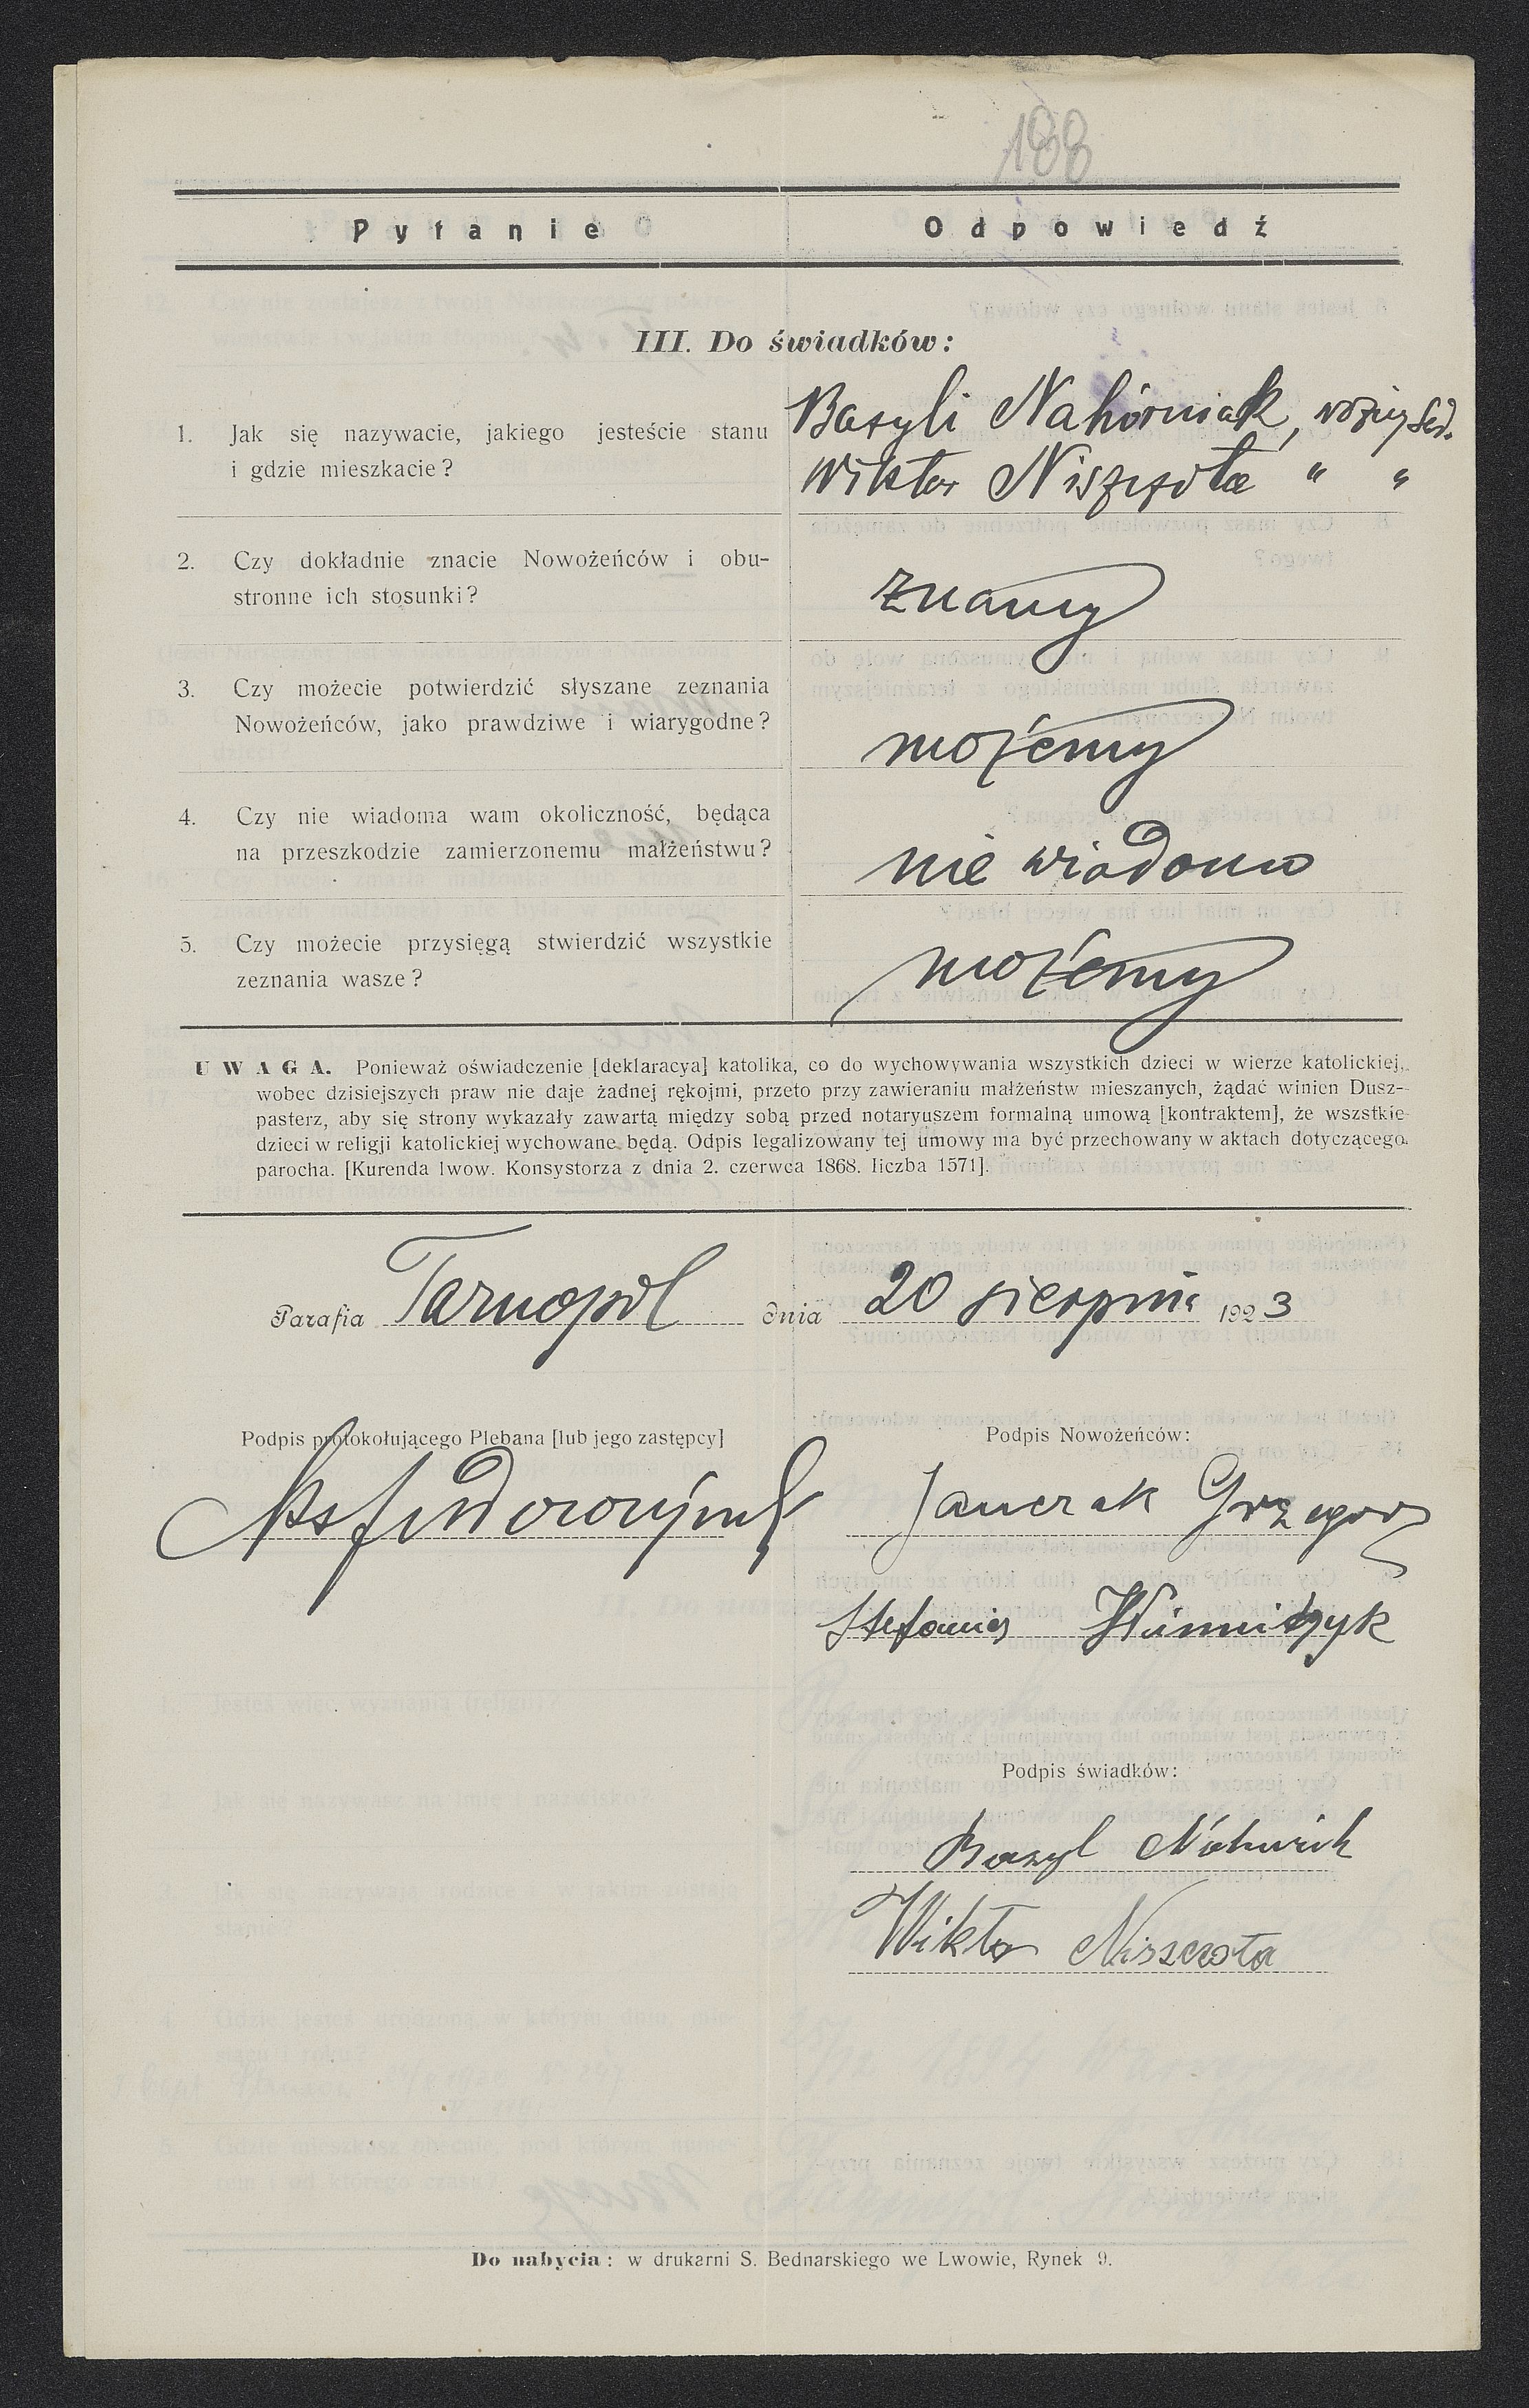 188
Pytanie Odpowiedź
III. Do świadków:
1. Jak się nazywacie, jakiego jesteście stanu
i gdzie mieszkacie?
Bazyli Nahórniak, woźny sąd.
Wiktor Niszczota " "
2. Czy dokładnie znacie Nowożeńców i obu-
stronne ich stosunki?
znamy
3. Czy możecie potwierdzić słyszane zeznania
Nowożeńców, jako prawdziwe i wiarygodne?
możemy
4. Czy nie wiadoma wam okoliczność, będąca
na przeszkodzie zamierzonemu małżeństwu?
nie wiadoma
5. Czy możecie przysięgą stwierdzić wszystkie
zeznania wasze?
możemy
UWAGA. Ponieważ oświadczenie [deklaracya] katolika, co do wychowywania wszystkich dzieci w wierze katolickiej,
wobec dzisiejszych praw nie daje żadnej rękojmi, przeto przy zawieraniu małżeństw mieszanych, żądać winien Dusz-
pasterz, aby się strony wykazały zawartą między sobą przed notaryuszem formalną umową [kontraktem], że wszstkie
dzieci w religji katolickiej wychowane będą. Odpis legalizowany tej umowy ma być przechowany w aktach dotyczącego
parocha. [Kurenda lwow. Konsystorza z dnia 2. czerwca 1868. liczba 1571].
Parafia Tarnopol dnia 20 sierpnia 1923
Podpis protokołującego Plebana [lub jego zastępcy]
Podpis Nowożeńców:
Janczak Grzegorz
Stefania
Podpis świadków:
Bazyl
Wiktor Niszczota
Do nabycia: w drukarni S. Bednarskiego we Lwowie, Rynek 9.